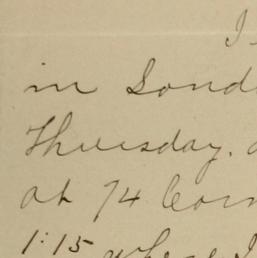 I
in Lond
Thursday.
at 74 Corn
1:15 where I